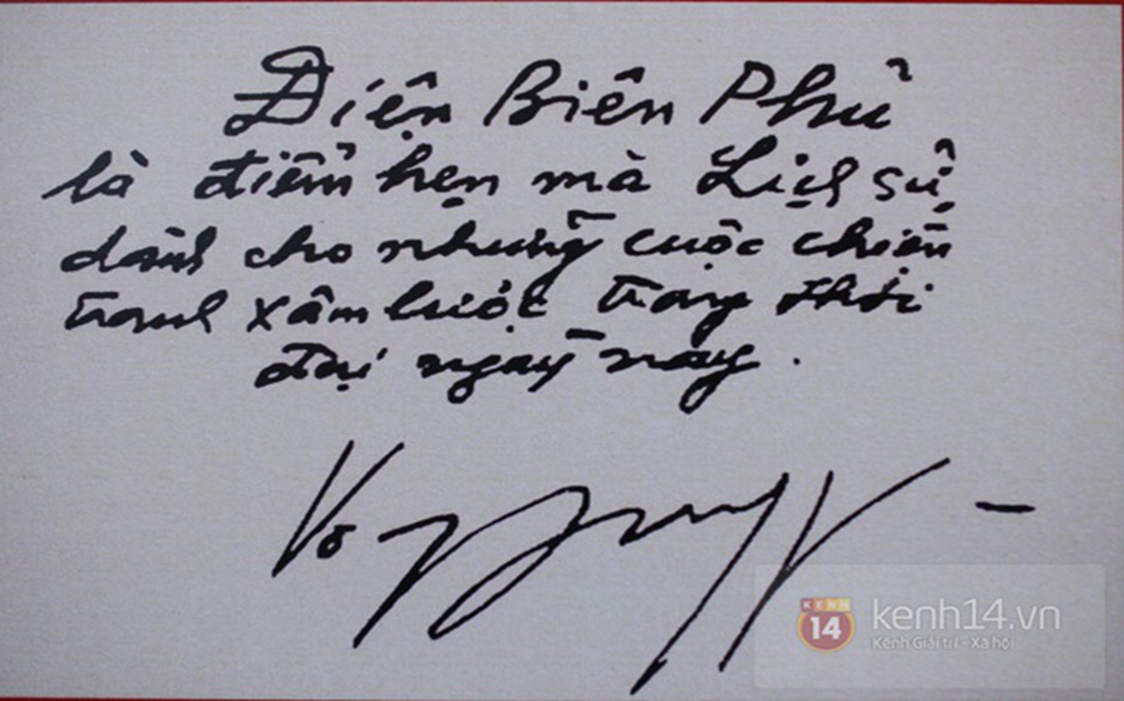 Điện Biên Phủ
là điểm hẹn mà Lịch sử
dành cho những cuộc chiến
tranh xâm lược trong thời
đại ngày nay.
Võ
KENH
14
kenh14.vn
Kênh Giải trí - Xã hội